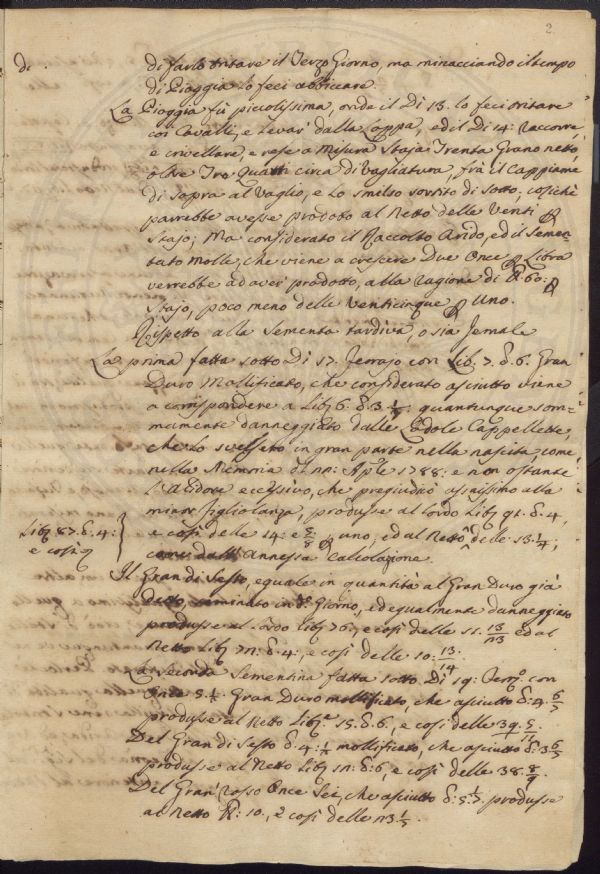 2.
di
di farlo tritare il Terzo Giorno, ma minacciando il tempo
di Pioggia lo feci abbicare.
La Pioggia fù piccolissima, onde il Dì 13. lo feci tritare
coi Cavalli, e levar dalla Loppa, ed il Dì 14: raccorre,
e crivellare, e rese a Misura Staja Trenta Grano netto,
oltre Tre Quarti circa di Vagliatura, frà il Cappiame
di sopra al Vaglio, e lo smilzo sortito di sotto, cosichè
parrebbe avesse prodoto al Netto delle Venti
Stajo; Ma considerato il Raccolto Arido, ed il Semen-
tato Molle, che viene a crescere Due Once Libra
verrebbe ad aver prodotto, alla ragione di 60:
Stajo, poco meno delle Venticinque Uno.
Rispetto alla Sementa tardiva, o sia Jemale
La prima fatta sotto Dì 17. Ferrajo con Lib. 7. d. 6. Gran
Duro Mollificato, che considerato asciutto viene
a corrispondere a Lib. 6. d. 3 quantunque som-
mamente danneggiato dalle Lodole Cappellette,
che lo svelsero in gran parte nella nascita come
nella Memoria di Aple 1788: e non ostante
l'Alidore eccessivo, che pregiudicò assaissimo alla
minor figliolanza, produsse al lordo Lib. 91. d. 4,
Lib. 87. d. 4:
e così delle 14: e 5/8 uno, ed al Netto delle 13. 1/4;
e così
come dall' Annessa Calcolazione.
Il Gran di Sesto, eguale in quantità al Gran Duro già
detto, seminato in do. Giorno, ed egualmente danneggiato
produsse al lordo Lib. 76, e così delle 11. ed al
Netto Lib. d. 4:, e così delle 10: 13/14.
La seconda Sementina fatta sotto Dì 19: con
Once 5. Gran Duro mollificato, che asciutto d. 4.
produsse al Netto Lib. 15. d. 6, e così delle 39.
Del Gran di Sesto d. 4: 1/2 mollificato, che asciutto d. 3
produsse al Netto Lib. d: 6, e così delle 38. 8/9
Del Gran Rosso Once Sei, che asciutto d: 5 produsse
al Netto 10:, e così delle